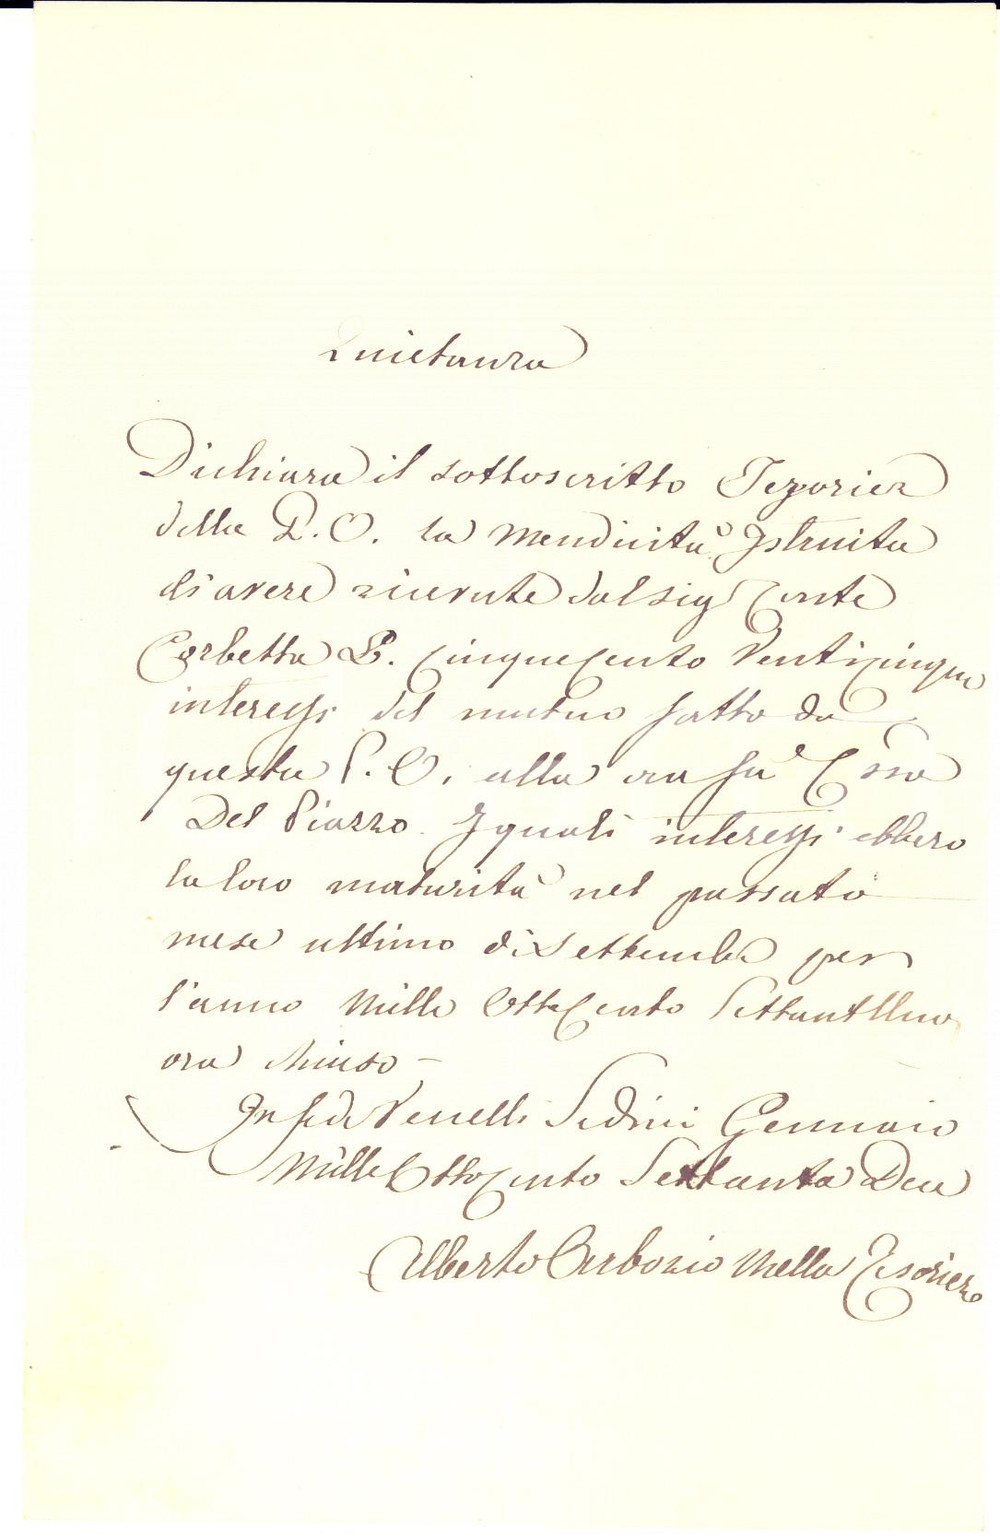 Quietanza
Dichiara il sottoscritto Tezorier
della P. O. la Mendicità Istruita
di avere ricevute dal sig Conte
Corbetta L. CinqueCento Venticinque
interessi del mutuo fatto da
questa P. O. alla ora fu Cssa
Del Piazzo. I quali interessi ebbero
la loro maturità nel passato
mese ultimo di Settembre per
l'anno Mille OttoCento SettantUno
ora chiuso —
In fede Vercelli Sedici Gennaio
Mille OttoCento Settanta Due
Alberto Arborio Mella Tesoriere